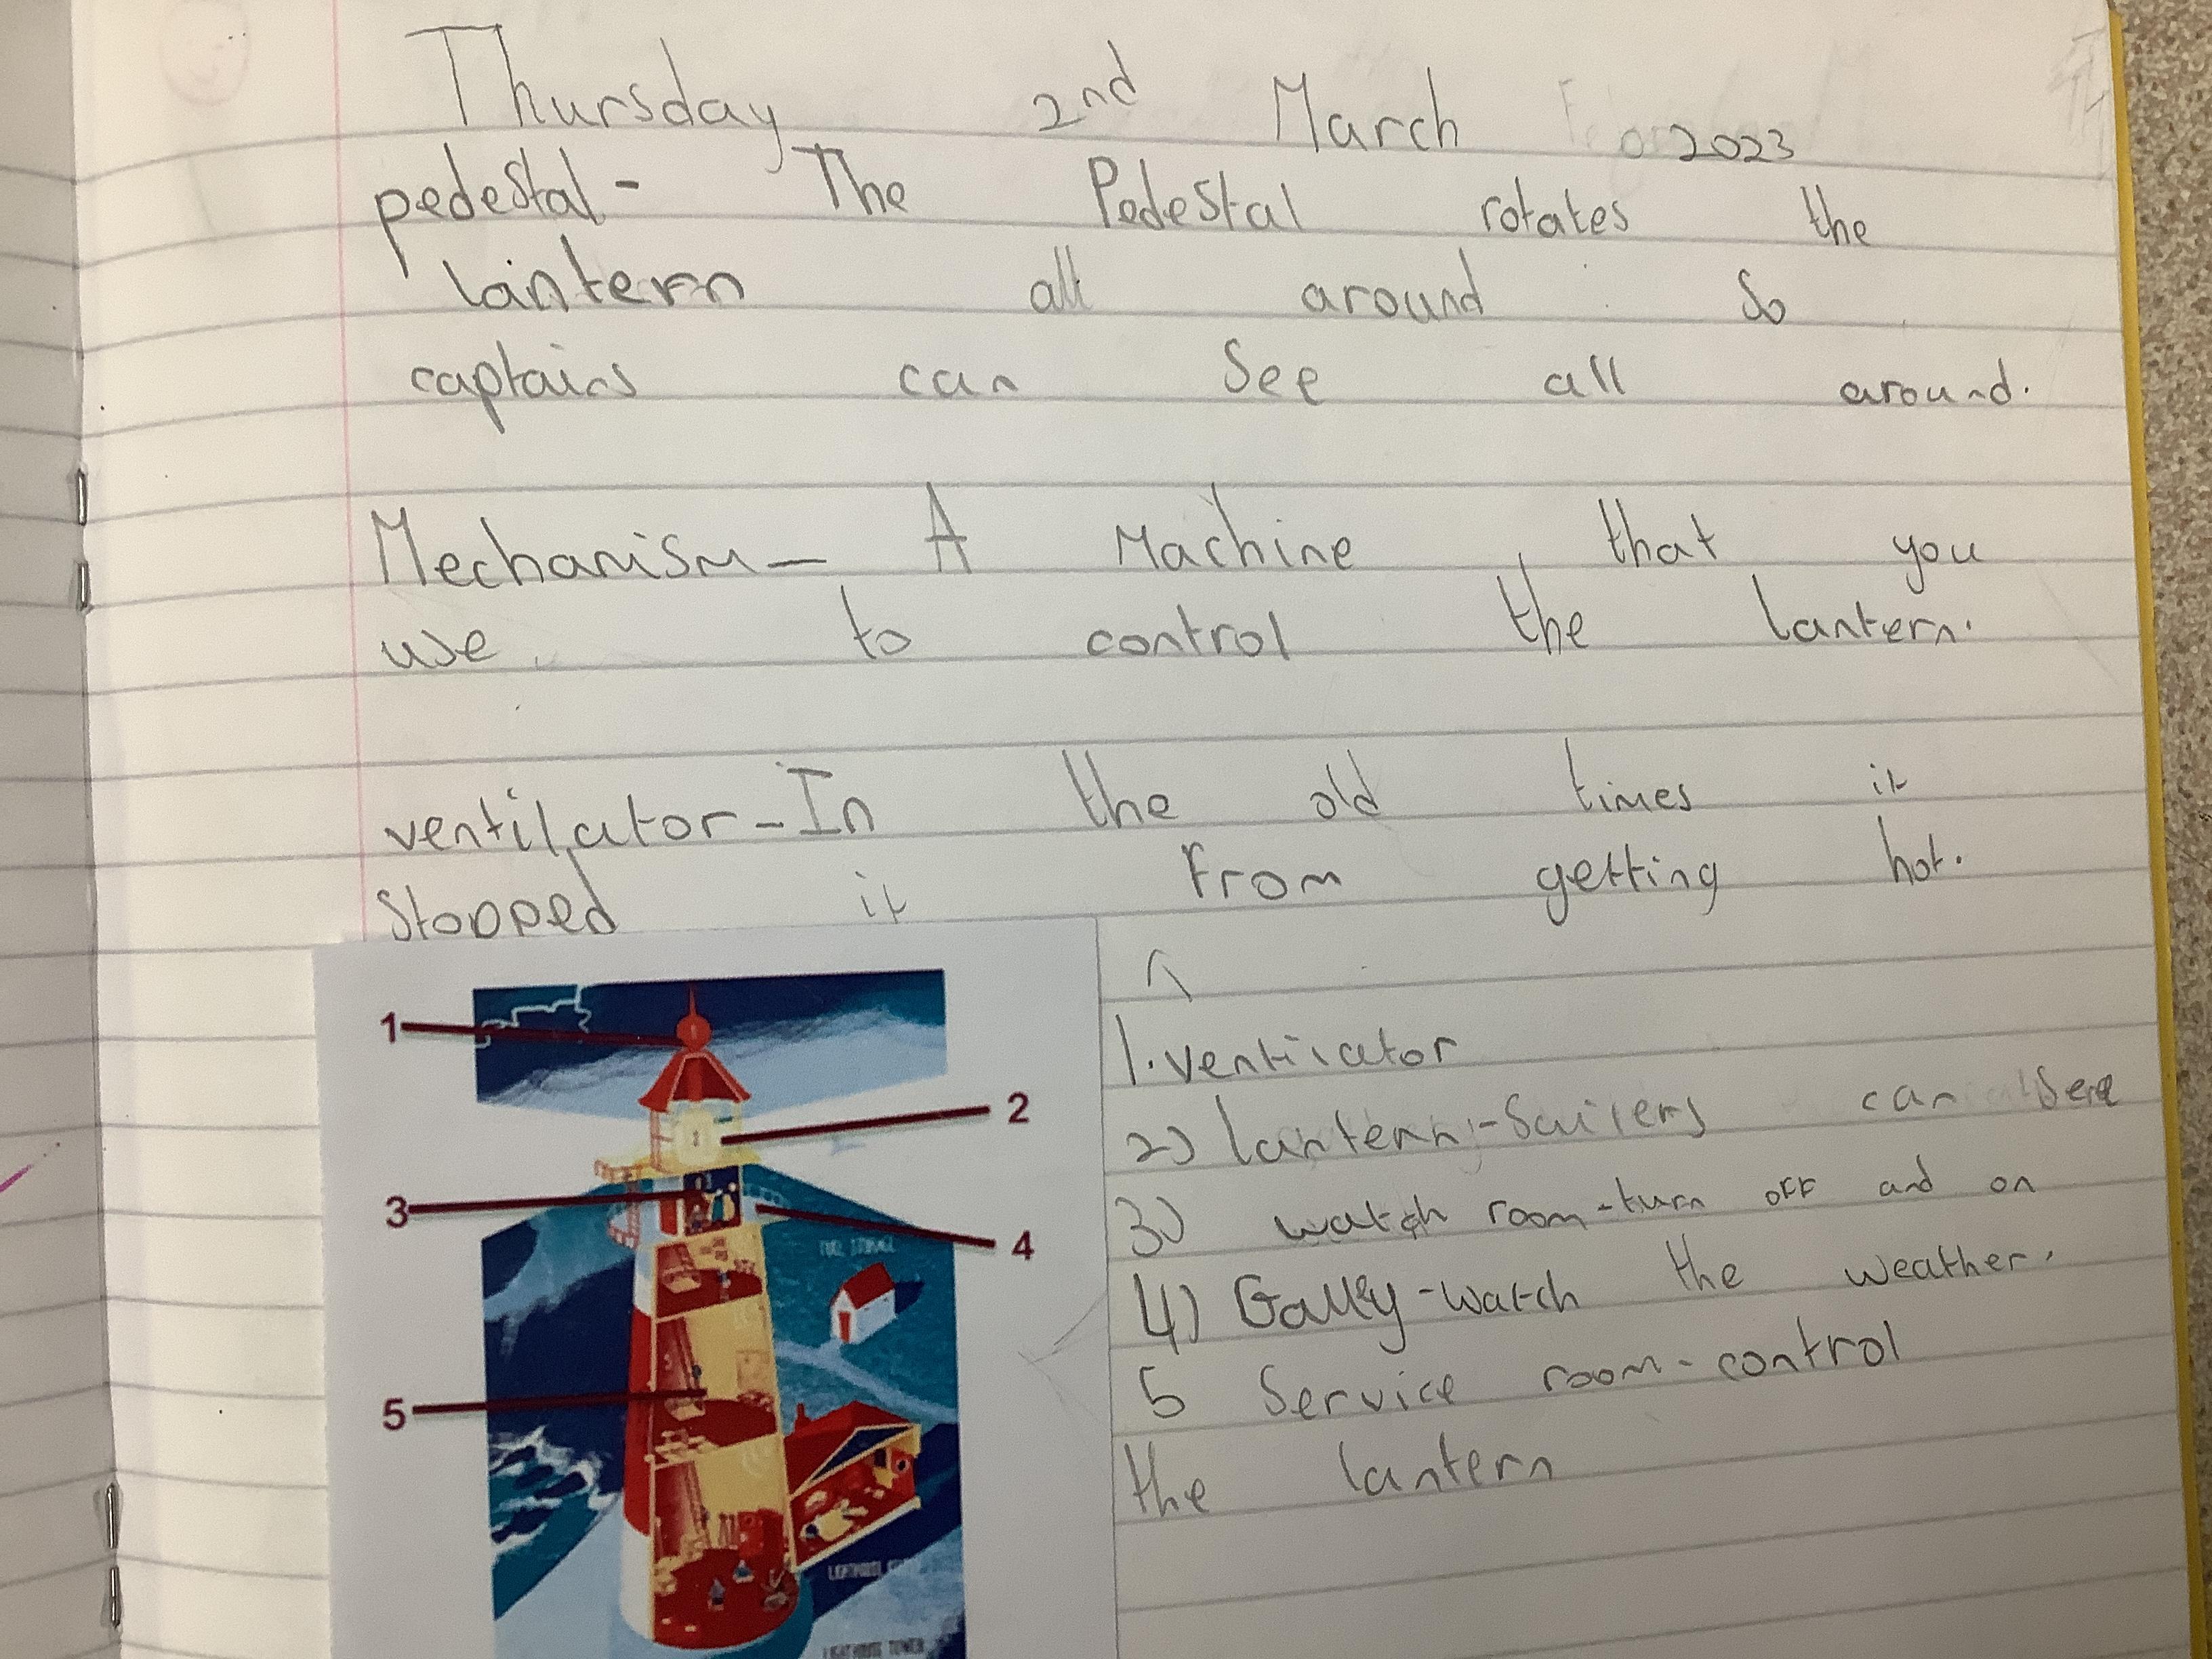 Thursday 2nd March 2023
pedestal - The Pedestal rotates the
lantern all around so
captains can see all around.
Mechanism - A Machine that you
use to control the lantern.
ventilator - In the old times it
stopped it from getting hot.
1. ventilator
2) lantern - Sailers can see
3) watch room - turn off and on
4) Gally - watch the weather.
5 Service room - control
the lantern
1
2
3
4
5
FUEL STORAGE
LIGHTHOUSE
LIGHTHOUSE TOWER